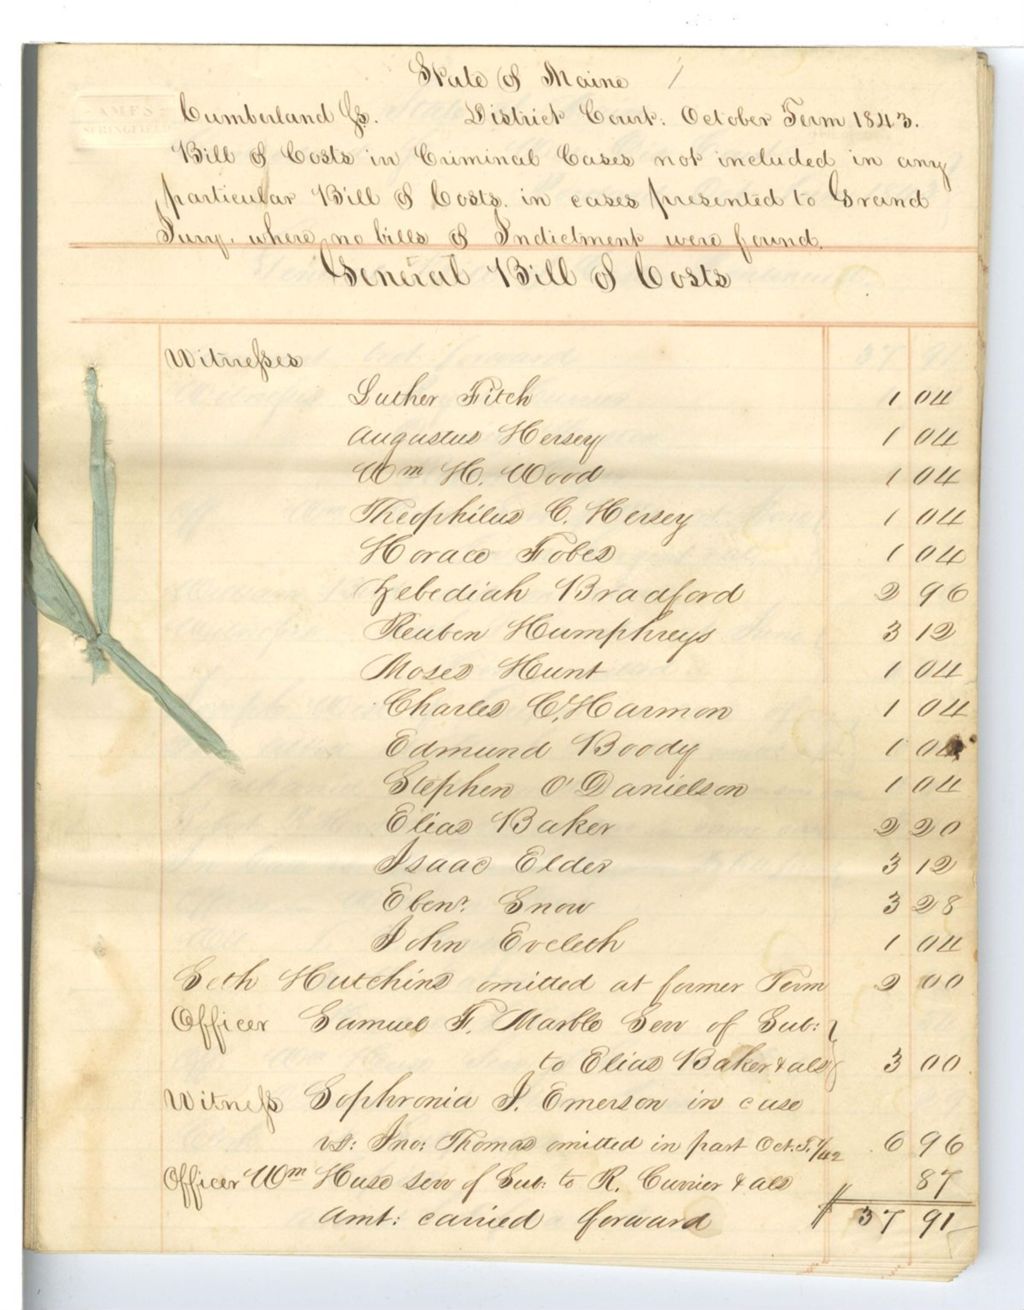 State of Maine 1
AMES
SPRINGFIELD
Cumberland Ss. District Court: October Term 1843.
Bill of Costs in Criminal Cases not included in any
particular Bill of Costs. in cases presented to Grand
Jury, where no bills of Indictment were found.
General Bill of Costs
Witnesses
Luther Fitch 1 04
Augustus Hersey 1 04
Wm H. Wood 1 04
Theophilus C. Hersey 1 04
Horace Fobes 1 04
Zebediah Bradford 2 96
Reuben Humphreys 3 12
Moses Hunt 1 04
Charles C. Harmon 1 04
Edmund Boody 1 04
Stephen O'Danielson 1 04
Elias Baker 2 20
Isaac Elder 3 12
Ebenr. Snow 3 28
John Eveleth 1 04
Seth Hutchins omitted at former Term 2 00
Officer Samuel F. Marble Serv of Sub:
to Elias Baker & als 3 00
Witness Sophronia J. Emerson in case
vs: Jno: Thomas omitted in part Oct. T. /42 6 96
Officer Wm Huse serv of Sub: to R. Currier & als 87
Amt: carried forward 37 91